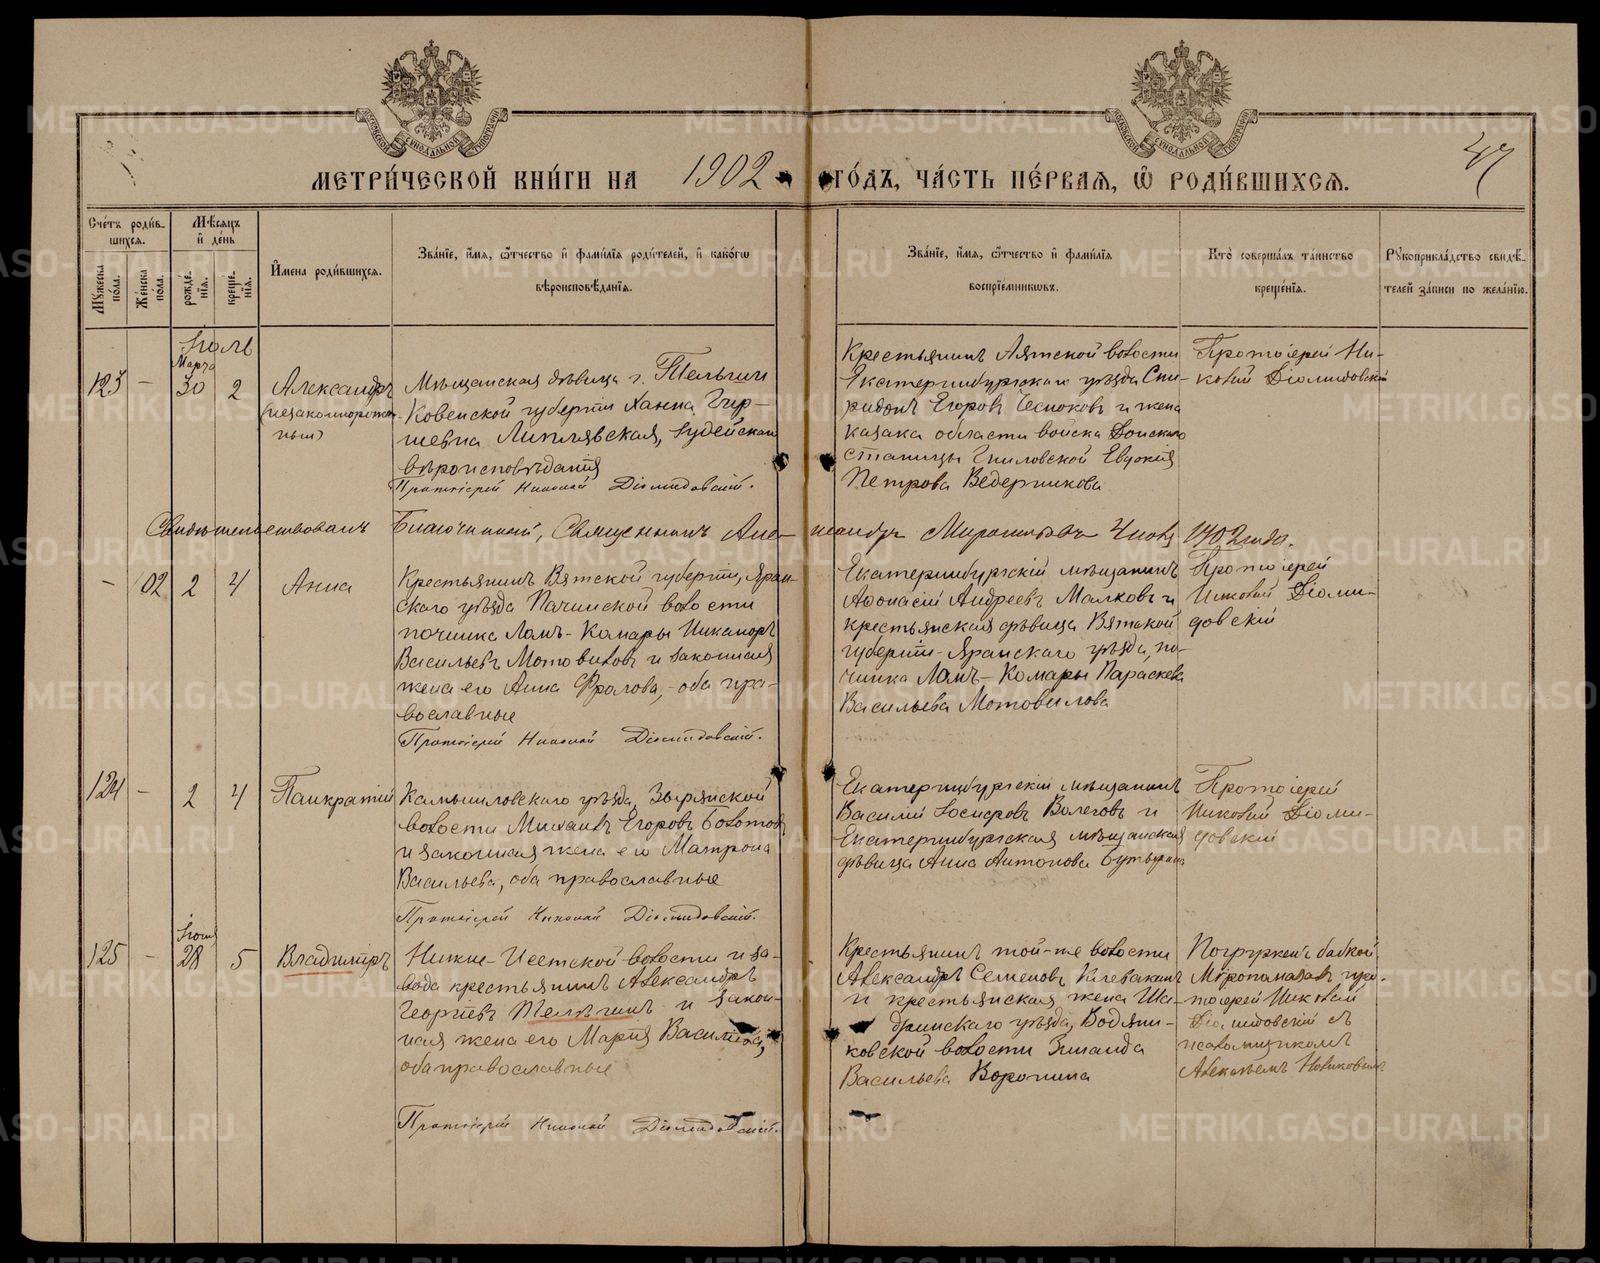 МЕТРИ́ЧЕСКОЙ КНИ́ГИ НА 1902 ГО́ДЪ, ЧА́СТЬ ПЕ́РВАЯ, Ѡ РОДИ́ВШИХСЯ.
47
Сче́тъ роди́в-
шихся.
Мѣ́сяцъ
и де́нь
Му́жеска
по́ла.
Же́нска
по́ла.
рожде́-
нїя.
креще́-
нїя.
И́мена роди́вшихся.
Зва́нїе, и́мя, ѻ́тчество и фами́лїя роди́телей, и како́гѡ
вѣроисповѣ́данїя.
Зва́нїе, и́мя, ѻ́тчество и фами́лїя
воспрїе́мникѡвъ.
Кто̀ соверша́лъ та́инство
креще́нїя.
Рꙋкоприкла́дство свидѣ́-
телей за́писи по жела́нїю.
Іюль
Марта
123 - 30 2
Александръ
(незаконнорожден-
ный)
Мѣщанская дѣвица г. Тельши
Ковенской губерніи Ханна Гир-
шевна Липлявская, іудейскаго
вѣроисповѣданія
Протоіерей Николай Діомидовскій.
Крестьянинъ Аятской волости
Екатеринбургскаго уѣзда Спи-
ридонъ Егоровъ Чесноковъ и жена
казака области войска Донскаго
станицы Гниловской Евдокія
Петрова Ведерникова
Протоіерей Ни-
колай Діомидовскій
Свидѣтельствовалъ Благочинный, Священникъ Александръ Миропольскій 1902 года.
- 102 2 4
Анна
Крестьянинъ Вятской губерніи, Яран-
скаго уѣзда Пачинской волости
починка Ломъ-Комары Никаноръ
Васильевъ Мотовиловъ и законная
жена его Анна Фролова,-оба пра-
вославные
Протоіерей Николай Діомидовскій.
Екатеринбургскій мѣщанинъ
Аѳонасій Андреевъ Малковъ и
крестьянская дѣвица Вятской
губерніи-Яранскаго уѣзда, по-
чинка Ломъ-Комары Параскева
Васильева Мотовилова
Протоіерей
Николай Діоми-
довскій
124 - 2 4
Панкратій
Камышловскаго уѣзда, Зырянской
волости Михаилъ Егоровъ Болотовъ
и законная жена его Матрона
Васильева, оба православные
Протоіерей Николай Діомидовскій.
Екатеринбургскій мѣщанинъ
Василій Іосифовъ Волеговъ и
Екатеринбургская мѣщанская
дѣвица Анна Антонова
Протоіерей
Николай Діоми-
довскій
Іюня
125 - 28 5
Владиміръ
Нижне-Исетской волости и за-
вода крестьянинъ Александръ
Георгіевъ Телѣгинъ и закон-
ная жена его Марія Васильева,
оба православные
Протоіерей Николай Діомидовскій.
Крестьянинъ той-же волости
Александръ Семеновъ Клевакинъ
и крестьянская жена Ша-
дринскаго уѣзда, Водени-
ковской волости Зинаида
Васильева Воронина
Погруженъ бабкой.
Мѵропомазалъ про-
тоіерей Николай
Діомидовскій съ
псаломщикомъ
Алексѣемъ Новиковымъ
METRIKI.GASO-URAL.RU